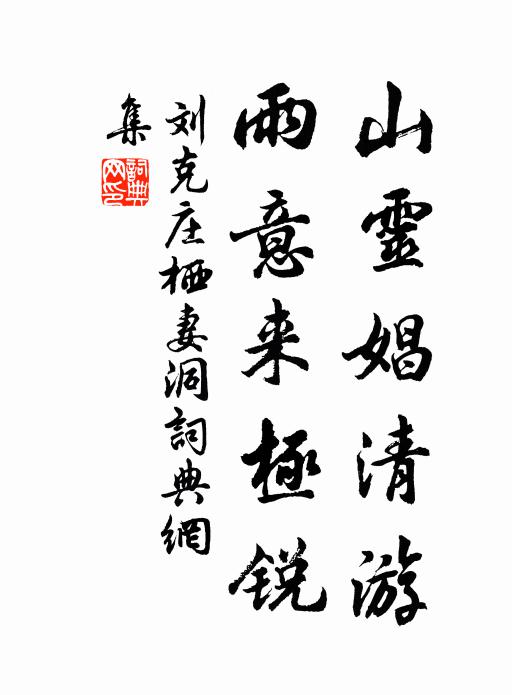 山靈娼清游
雨意来極锐
刘克庄栖妻洞詞典網
集
詞典网印